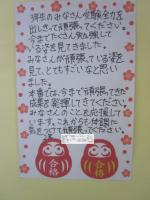 3年生のみなさん受験全力を
出しきって頑張ってください。
今までたくさん勉強して
いる姿を見てきました。
みなさんが頑張っている姿を
見て、とてもすごいなと思い
ました。
本番では、今まで頑張ってきた
成果を発揮してきてください。
みなさんのことを応援して
います。これからも体調に
気をつけて頑張ってください。
合格
合格